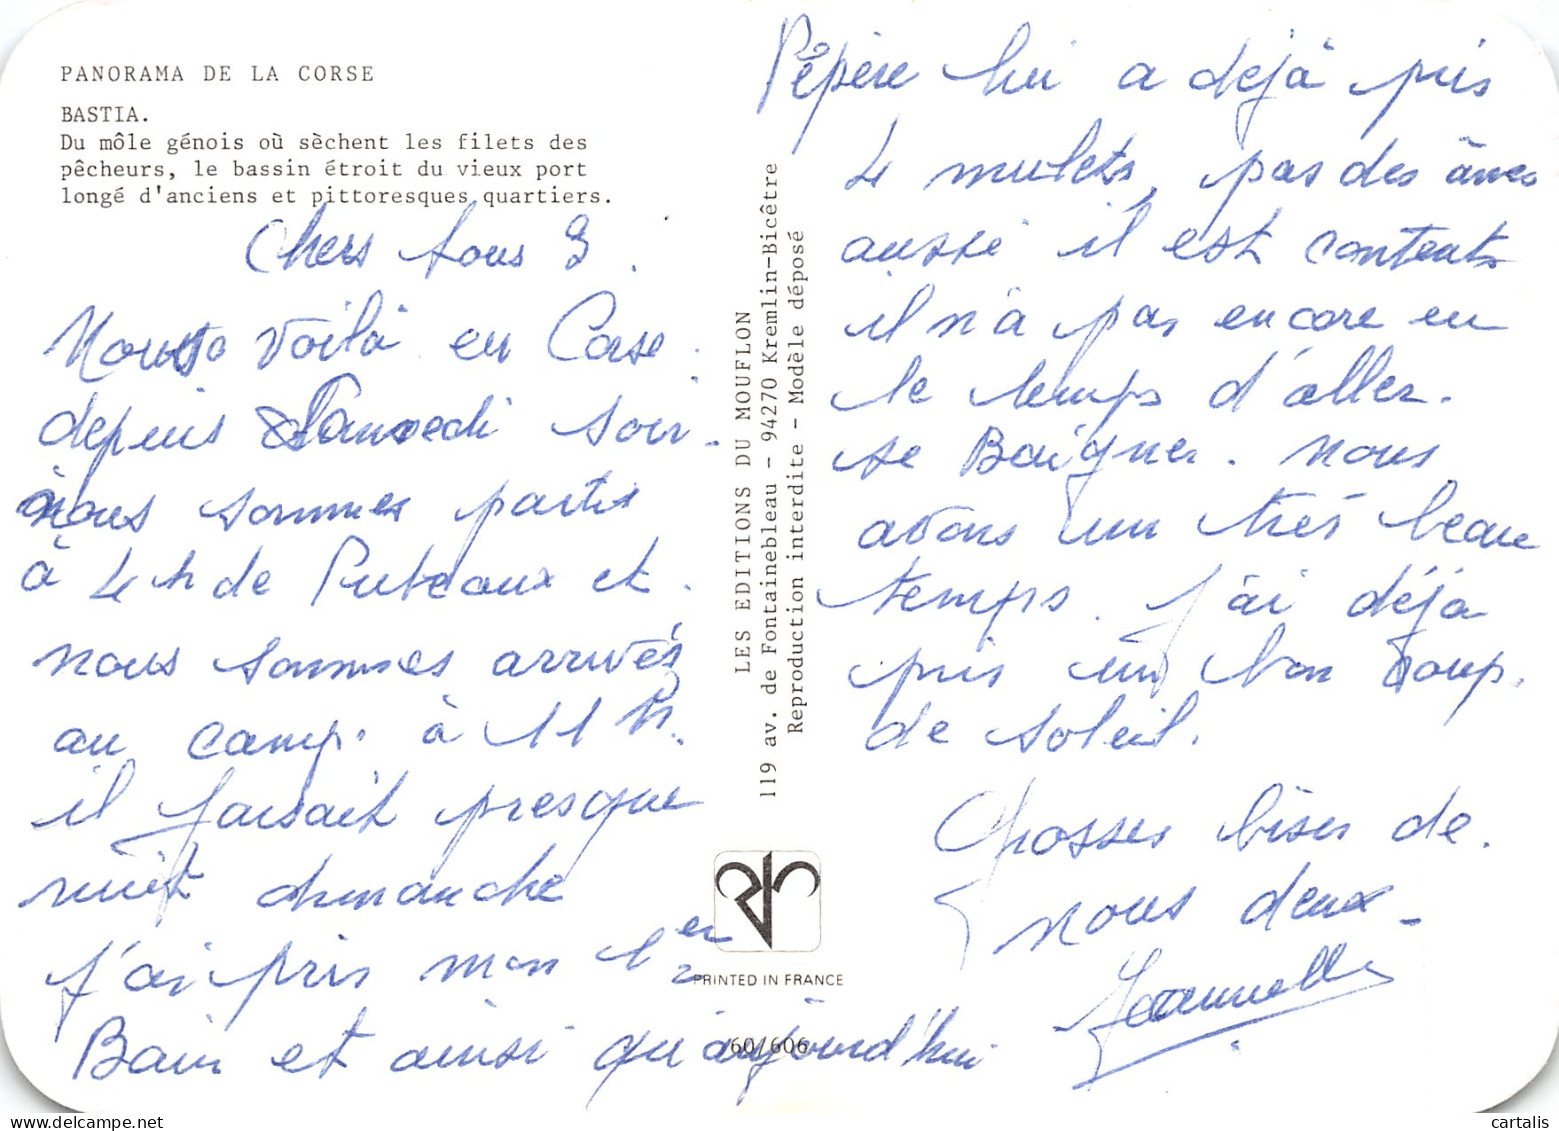 PANORAMA DE LA CORSE
BASTIA.
Du môle génois où sèchent les filets des
pêcheurs, le bassin étroit du vieux port
longé d'anciens et pittoresques quartiers.
Chers tous 3.
Nous voilà en Corse.
depuis Samedi soir.
nous sommes partis
à 4 h de Puteaux et.
nous sommes arrivés
au camp. à 11 h.
il faisait presque
nuit dimanche
j'ai pris mon 1er
Bain et ainsi qu'aujourd'hui
LES EDITIONS DU MOUFLON
119 av. de Fontainebleau - 94270 Kremlin-Bicêtre
Reproduction interdite - Modèle déposé
PRINTED IN FRANCE
60/606
Pépère lui a déjà pris
4 mulets, pas des ânes
aussi il est contents
il n'a pas encore eu
le temps d'aller.
se Baigner. nous
avons un très beau
temps. j'ai déjà
pris un bon coup.
de soleil.
Grosses bises de.
nous deux -
Jeannette
cartalis